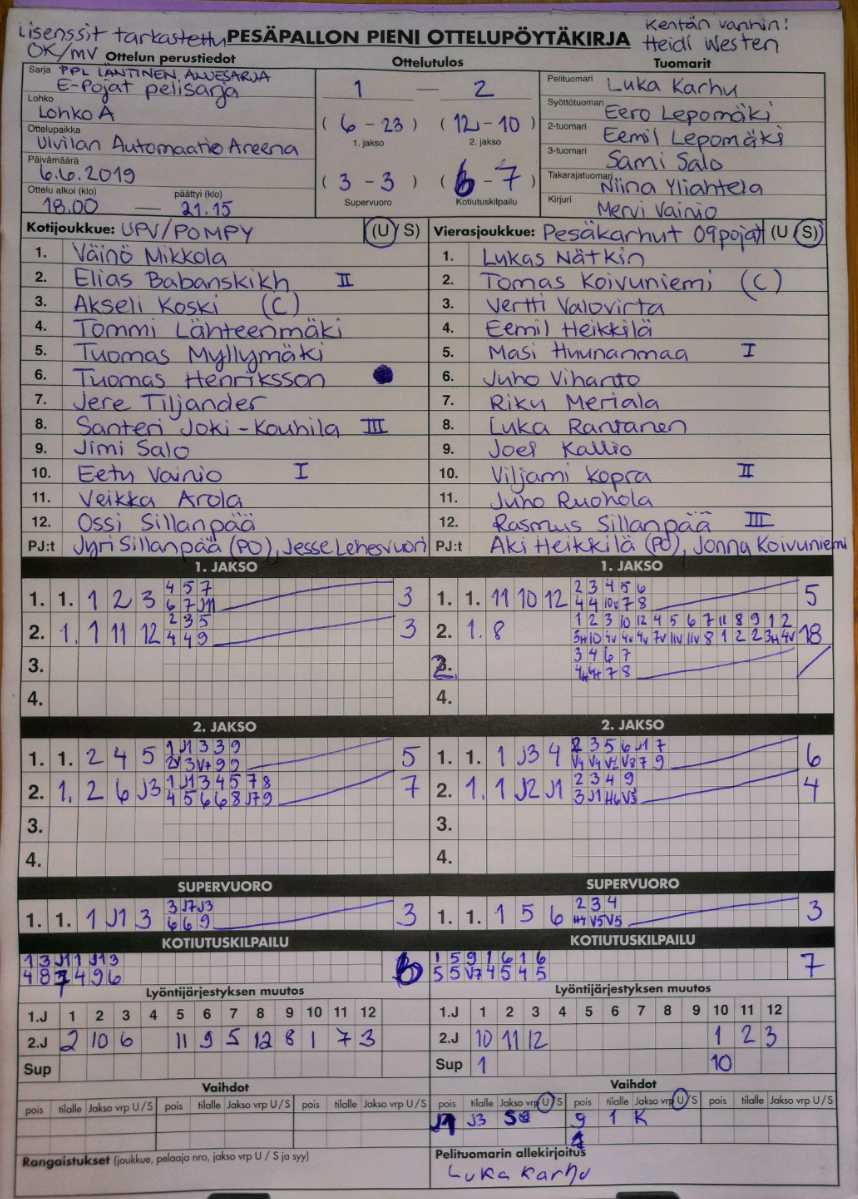 Lisenssit tarkastettu
OK/MV
PESÄPALLON PIENI OTTELUPÖYTÄKIRJA
Kentän vanhin:
Heidi Westen
Ottelun perustiedot
Ottelutulos
Tuomarit
Sarja PPL LÄNTINEN, ALUESARJA
E-Pojat pelisarja
Lohko
Lohko A
Ottelupaikka
Ulvilan Automaatio Areena
Päivämäärä
6.6.2019
Ottelu alkoi (klo) päättyi (klo)
18.00 — 21.15
1 — 2
( 6 - 23 ) ( 12 - 10 )
1. jakso 2. jakso
( 3 - 3 ) ( 6 - 7 )
Supervuoro Kotiutuskilpailu
Pelituomari Luka Karhu
Syöttötuomari Eero Lepomäki
2-tuomari Eemil Lepomäki
3-tuomari Sami Salo
Takarajatuomari Niina Yliahtela
Kirjuri Mervi Vainio
Kotijoukkue: UPV/POMPY (U/S)
1. Väinö Mikkola
2. Elias Babanskikh II
3. Akseli Koski (C)
4. Tommi Lähteenmäki
5. Tuomas Myllymäki
6. Tuomas Henriksson
7. Jere Tiljander
8. Santeri Joki-Kouhila III
9. Jimi Salo
10. Eetu Vainio I
11. Veikka Arola
12. Ossi Sillanpää
PJ:t Jyri Sillanpää (PO), Jesse Lehesvuori
Vierasjoukkue: Pesäkarhut 09pojat (U/S)
1. Lukas Nätkin
2. Tomas Koivuniemi (C)
3. Vertti Valovirta
4. Eemil Heikkilä
5. Masi Huunanmaa I
6. Juho Vihanto
7. Riku Meriala
8. Luka Rantanen
9. Joel Kallio
10. Viljami Kopra II
11. Juho Ruohola
12. Rasmus Sillanpää III
PJ:t Aki Heikkilä (PO), Jonna Koivuniemi
1. JAKSO
4 5 7
1. 1. 1 2 3 6 7 J11 3
2 3 5
2. 1. 1 11 12 4 4 9 3
3.
4.
1. JAKSO
2 3 4 5 6
1. 1. 11 10 12 4 4 10v 7 8 5
1 2 3 10 12 4 5 6 7 11 8 9 1 2
2. 1. 8 3H 10 4v 4v 4v 7v 11v 11v 8 1 2 2 3H 4v 18
3 4 6 7
2. 7 8
4.
2. JAKSO
1 J1 3 3 9
1. 1. 2 4 5 2v 3 V7 9 9 5
1 J1 3 4 5 7 8
2. 1. 2 6 J3 4 5 6 6 8 J7 9 7
3.
4.
2. JAKSO
2 3 5 6 J1 7
1. 1. 1 J3 4 V4 V4 V2 V8 7 9 6
2 3 4 9
2. 1. 1 J2 J1 3 J1 H6 V3 4
3.
4.
SUPERVUORO
3 J7 J3
1. 1. 1 J1 3 6 6 9 3
SUPERVUORO
2 3 4
1. 1. 1 5 6 H4 V5 V5 3
KOTIUTUSKILPAILU
1 3 J1 1 J1 3
4 8 7 4 9 6 6
KOTIUTUSKILPAILU
1 5 9 1 6 1 6
5 5 V7 4 5 4 5 7
Lyöntijärjestyksen muutos
1.J 1 2 3 4 5 6 7 8 9 10 11 12
2.J 2 10 6 11 9 5 12 8 1 7 3
Sup
Lyöntijärjestyksen muutos
1.J 1 2 3 4 5 6 7 8 9 10 11 12
2.J 10 11 12 1 2 3
Sup 1 10
Vaihdot
pois tilalle Jakso vrp U / S pois tilalle Jakso vrp U / S pois tilalle Jakso vrp U / S
Vaihdot
pois tilalle Jakso vrp U / S pois tilalle Jakso vrp U / S pois tilalle Jakso vrp U / S
J3 9 1 K
Rangaistukset (joukkue, pelaaja nro, jakso vrp U / S ja syy)
Pelituomarin allekirjoitus
Luka Karhu